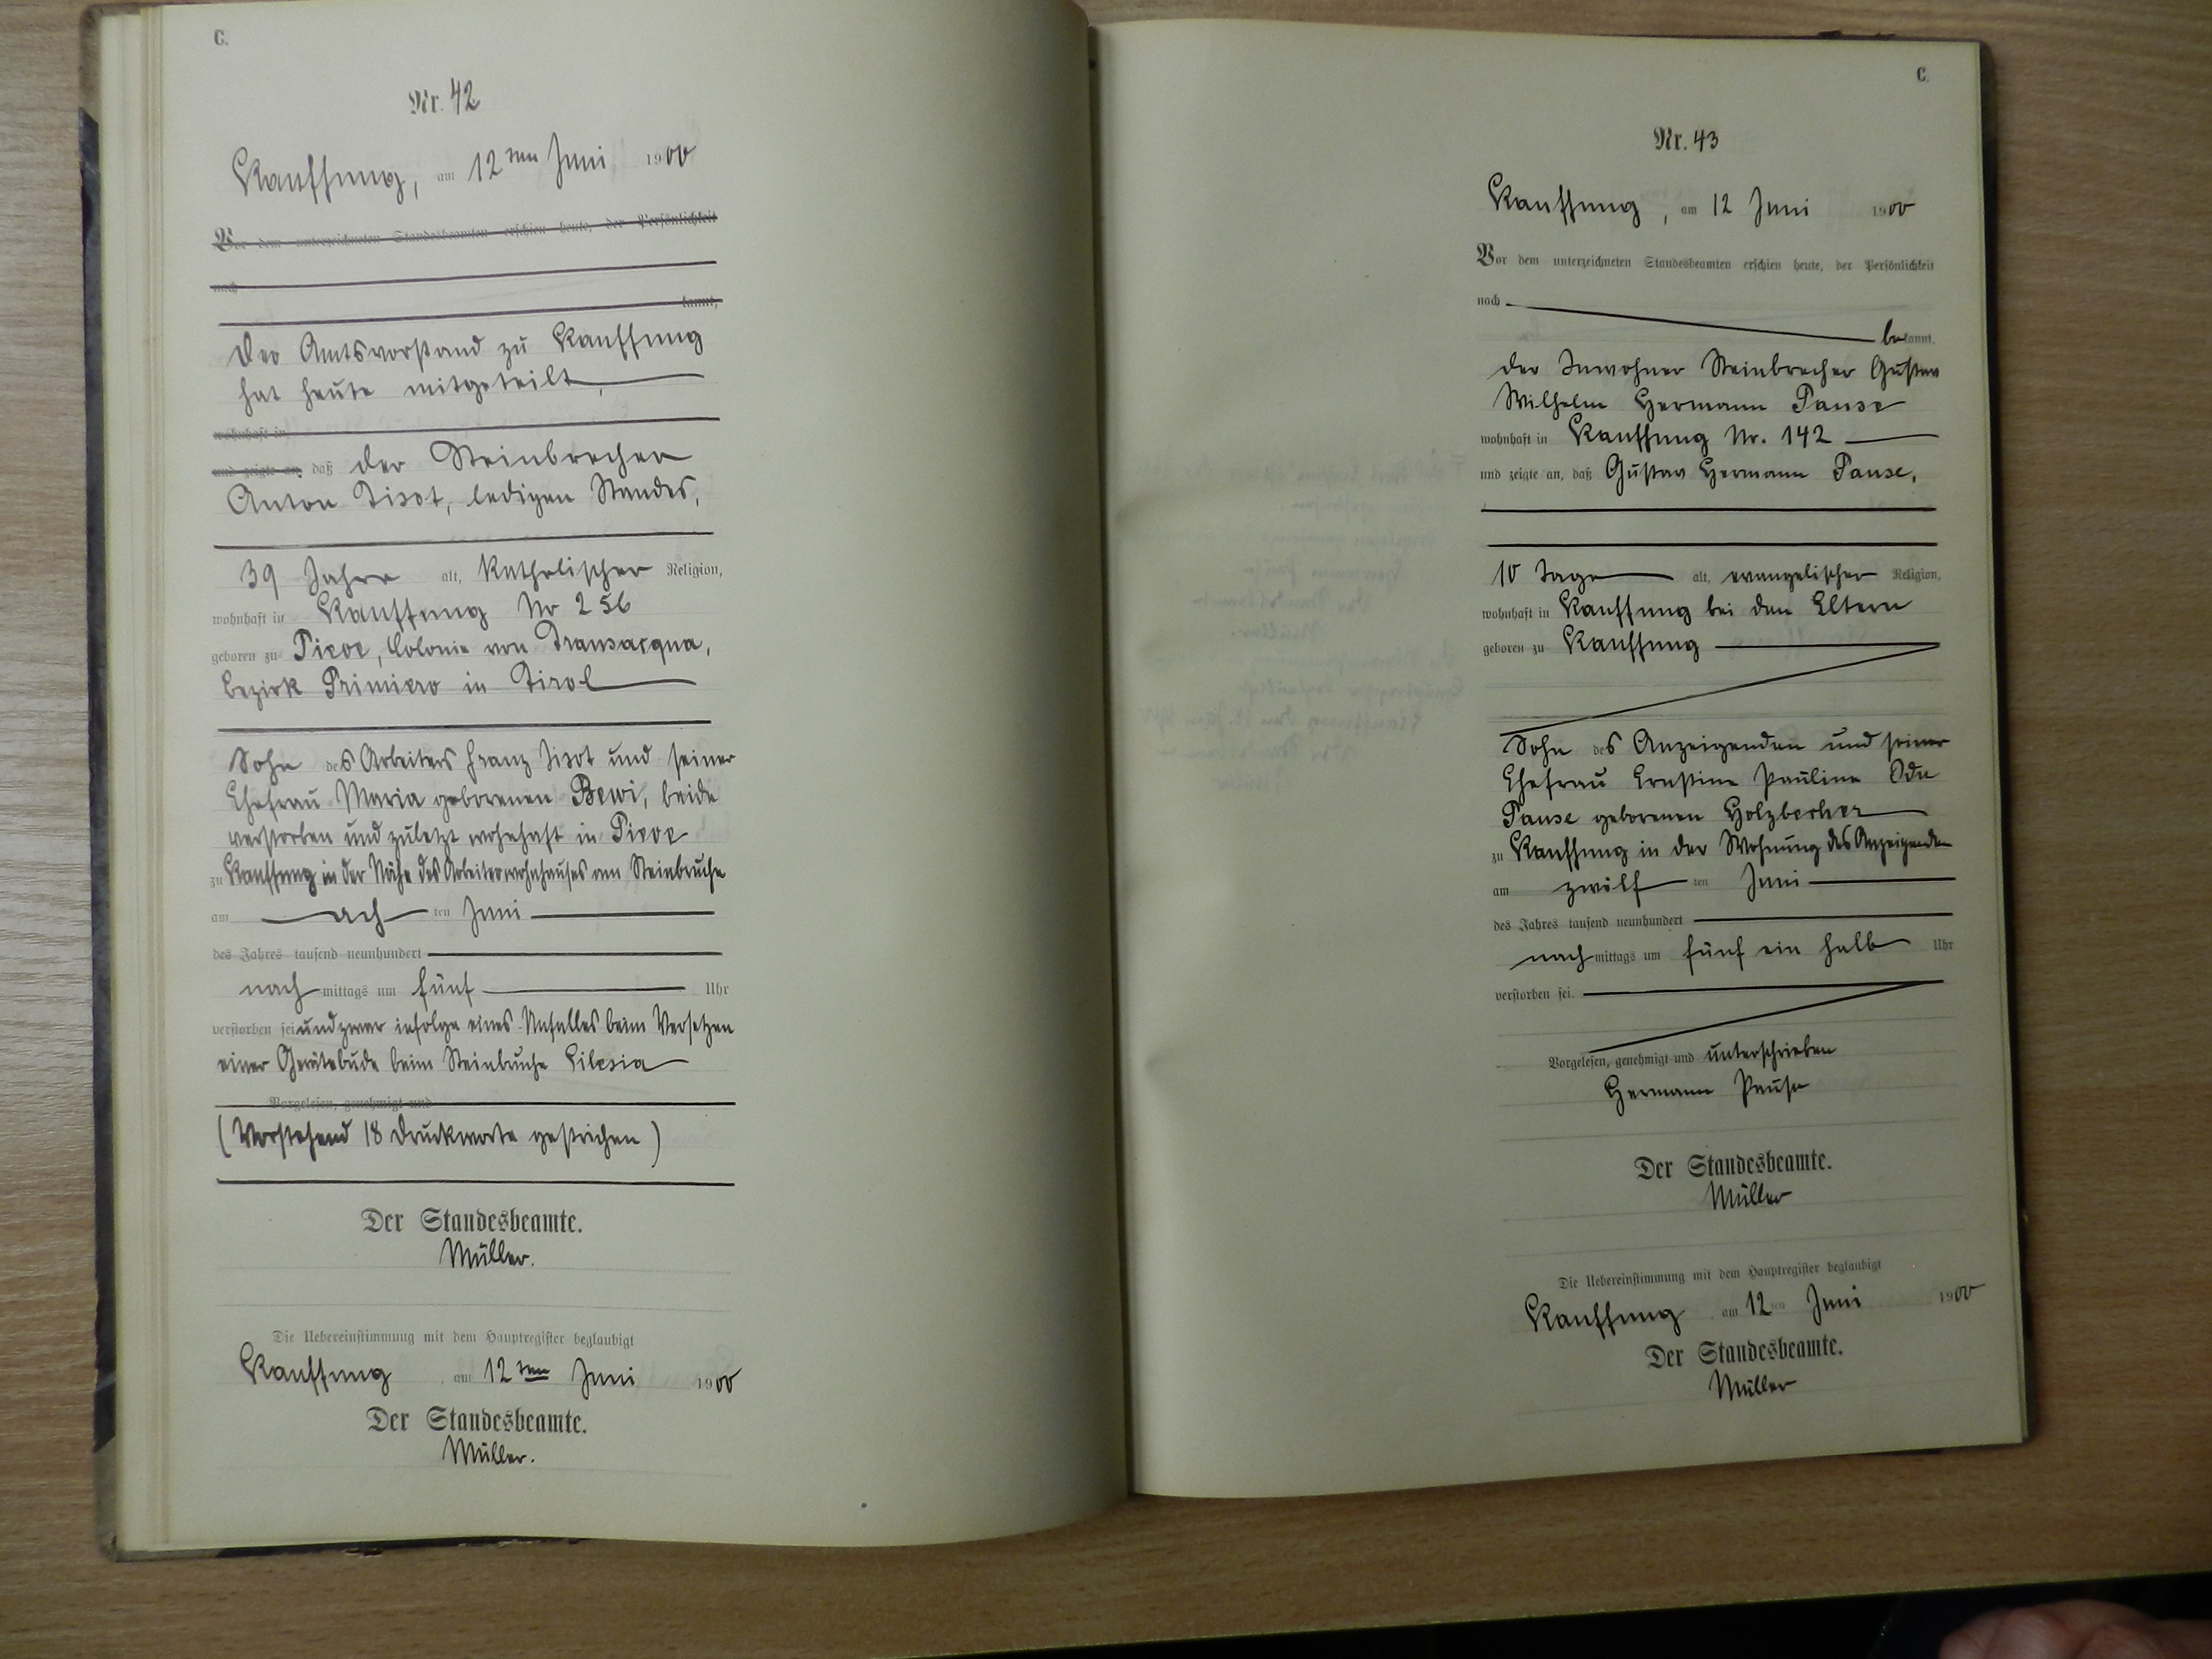 C.
Nr. 42
Kauffung, am 12ten Juni 1900
Vor dem unterzeichneten Standesbeamten erschien heute, der Persönlichkeit
nach
kannt,
Der Amtsvorstand zu Kauffung
hat heute mitgeteilt,
wohnhaft in
und zeigte an, daß der Steinbrecher
Anton Tisot, ledigen Standes,
39 Jahre alt, katholischer Religion,
wohnhaft in Kauffung Nr 256
geboren zu Pieve, Colonie von Transacqua,
Bezirk Primiero in Tirol
Sohn des Arbeiters Franz Tisot und seiner
Ehefrau Maria geborenen Bewi, beide
verstorben und zuletzt wohnhaft in Pieve
zu Kauffung in der Nähe des Arbeiterwohnhauses am Steinbruche
am ten Juni
des Jahres tausend neunhundert
nach mittags um fünf Uhr
verstorben sei und zwar infolge eines Unfalles beim Versetzen
einer Gerätebude beim Steinbruche Silesia
Vorgelesen, genehmigt und
(Vorstehend 18 Druckworte gestrichen)
Der Standesbeamte.
Müller.
Die Uebereinstimmung mit dem Hauptregister beglaubigt
Kauffung, am 12ten Juni 1900
Der Standesbeamte.
Müller.
C.
Nr. 43
Kauffung, am 12 Juni 1900
Vor dem unterzeichneten Standesbeamten erschien heute, der Persönlichkeit
nach
bekannt,
der Inwohner Steinbrecher Gustav
Wilhelm Hermann Pause
wohnhaft in Kauffung Nr. 142
und zeigte an, daß Gustav Hermann Pause,
10 Tage alt, evangelischer Religion,
wohnhaft in Kauffung bei den Eltern
geboren zu Kauffung
Sohn des Anzeigenden und seiner
Ehefrau Ernstine Pauline
Pause geborenen Holzbecher
zu Kauffung in der Wohnung des Anzeigenden
am zwölf ten Juni
des Jahres tausend neunhundert
nach mittags um fünf ein halb Uhr
verstorben sei.
Vorgelesen, genehmigt und unterschrieben
Hermann Pause
Der Standesbeamte.
Müller
Die Uebereinstimmung mit dem Hauptregister beglaubigt
Kauffung, am 12ten Juni 1900
Der Standesbeamte.
Müller